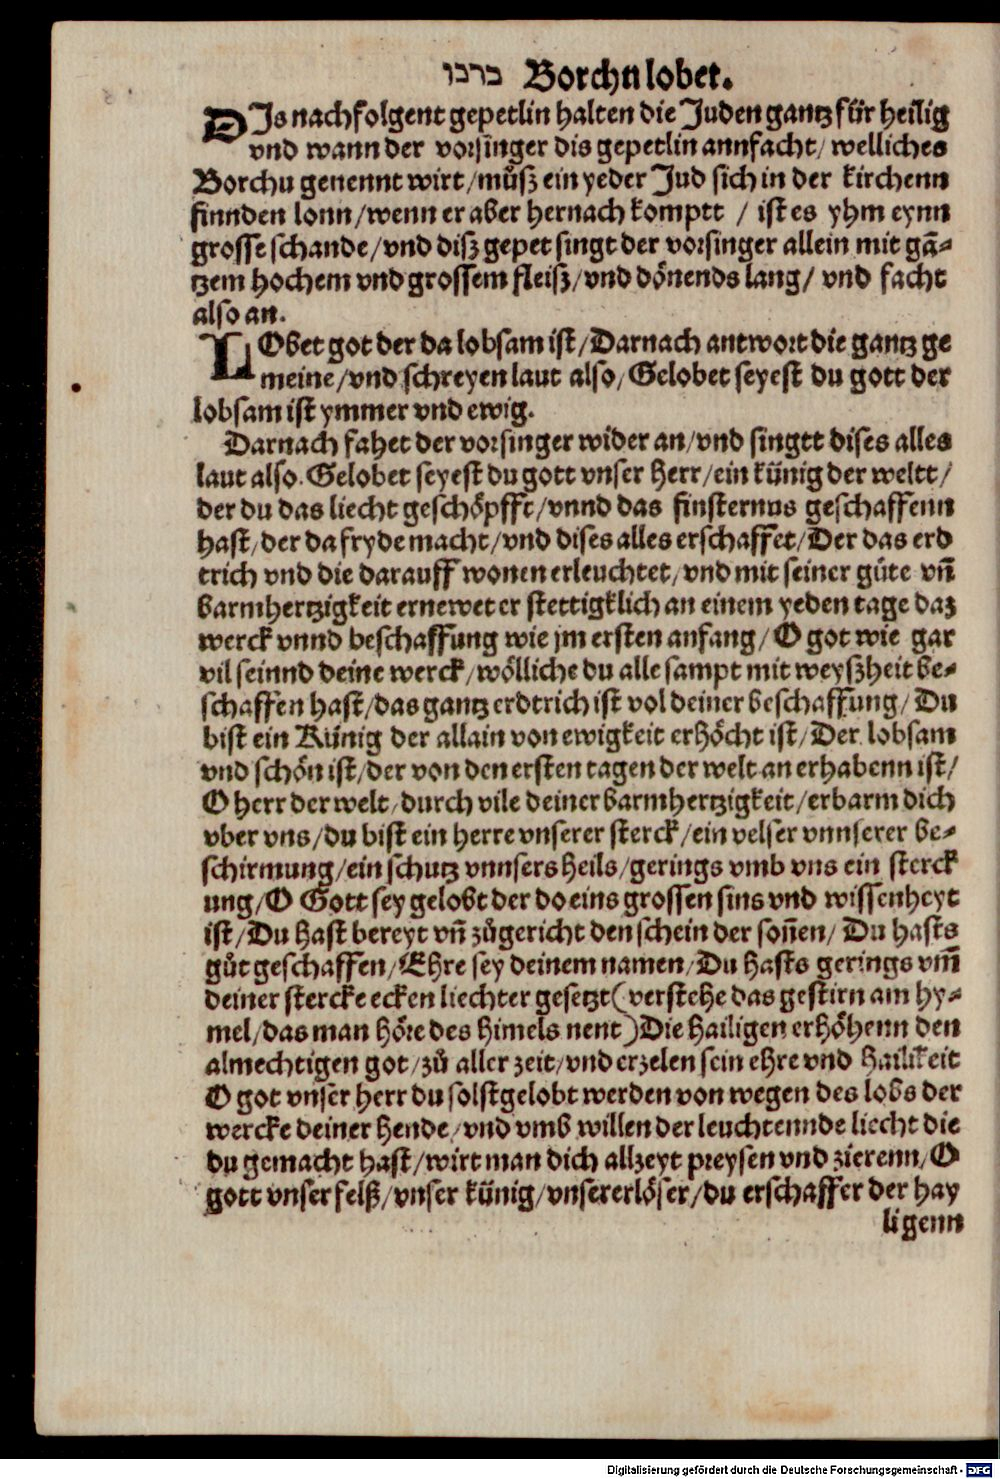 ברכו Borchu lobet.
DIs nachfolgent gepetlin halten die Juden gantz für heilig
vnd wann der vorsinger dis gepetlin annfacht/ welliches
Borchu genennt wirt/müsz ein yeder Jud sich in der kirchenn
finnden lonn/wenn er aber hernach komptt / ist es yhm eynn
grosse schande/vnd disz gepet singt der vorsinger allein mit gā-
tzem hochem vnd grossem fleisz/vnd dönends lang/ vnd facht
also an.
LObet got der da lobsam ist/Darnach antwort die gantz ge
meine/vnd schreyen laut also/Gelobet seyest du gott der
lobsam ist ymmer vnd ewig.
Darnach fahet der vorsinger wider an/vnd singtt dises alles
laut also. Gelobet seyest du gott vnser herr/ein künig der weltt/
der du das liecht geschöpfft/vnnd das finsternus geschaffenn
hast/der da fryde macht/vnd dises alles erschaffet/Der das erd
trich vnd die darauff wonen erleuchtet/vnd mit seiner güte vñ
barmhertzigkeit ernewet er stettigklich an einem yeden tage daz
werck vnnd beschaffung wie jm ersten anfang/O got wie gar
vil seinnd deine werck/wölliche du alle sampt mit weyszheit be-
schaffen hast/das gantz erdtrich ist vol deiner beschaffung/Du
bist ein Künig der allain von ewigkeit erhöcht ist/Der lobsam
vnd schön ist/der von den ersten tagen der welt an erhabenn ist/
O herr der welt/durch vile deiner barmhertzigkeit/erbarm dich
vber vns/du bist ein herre vnserer sterck/ein velser vnnserer be-
schirmung/ein schutz vnnsers heils/gerings vmb vns ein sterck
ung/O Gott sey gelobt der do eins grossen sins vnd wissenheyt
ist/Du hast bereyt vñ zůgericht den schein der soñen/Du hasts
gůt geschaffen/Ehre sey deinem namen/Du hasts gerings vm̄
deiner stercke ecken liechter gesetzt(verstehe das gestirn am hy-
mel/das man höre des himels nent)Die hailigen erhöhenn den
almechtigen got/zů aller zeit/vnd erzelen sein ehre vnd hailikeit
O got vnser herr du solst gelobt werden von wegen des lobs der
wercke deiner hende/vnd vmb willen der leuchtennde liecht die
du gemacht hast/wirt man dich allzeyt preysen vnd zierenn/O
gott vnser felß/vnser künig/vnser erlöser/du erschaffer der hay
ligenn
Digitalisierung gefördert durch die Deutsche Forschungsgemeinschaft - DFG